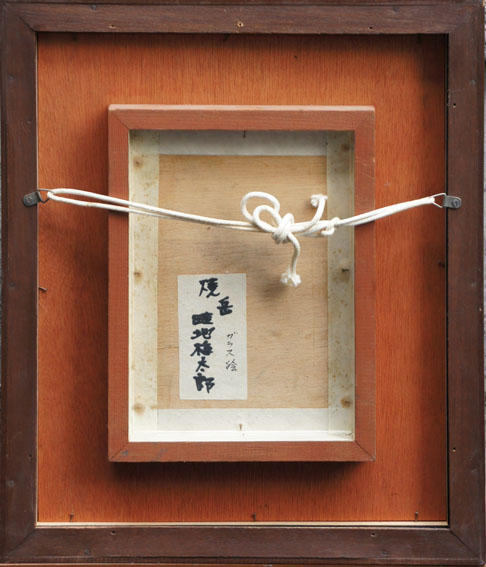 焼岳
ガラス絵
畦地梅太郎